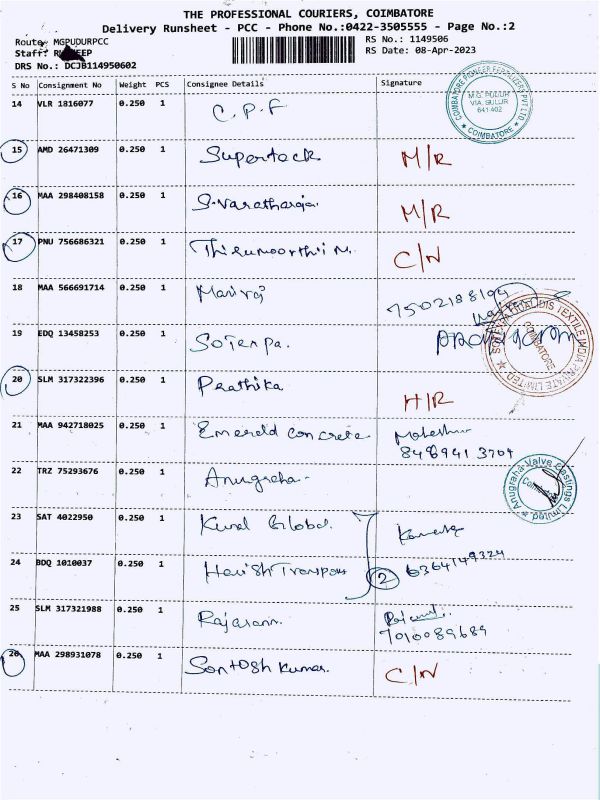 THE PROFESSIONAL COURIERS, COIMBATORE
Delivery Runsheet - PCC - Phone No.:0422-3505555 - Page No.:2
Route: MGPUDURPCC
RS No.: 1149506
Staff:
RS Date: 08-Apr-2023
DRS No.: DCJB114950602
S No Consignment No Weight PCS Consignee Details Signature
14 VLR 1816077 0.250 1 C.P.F
COIMBATORE PIONEER FERTILIZERS PVT LTD
M.G. PUDUR
VIA. SULUR
641 402
★ COIMBATORE ★
15 AMD 26471309 0.250 1 Supertack M/R
16 MAA 298408158 0.250 1 S.Varatharaja M/R
17 PNU 756686321 0.250 1 Thirumoorthii M. C/N
18 MAA 566691714 0.250 1 Maniraj 7502188194
19 EDQ 13458253 0.250 1 Soterpa.
TEXTILE INDIA PRIVATE LIMITED
COIMBATORE
20 SLM 317322396 0.250 1 Prathika H/R
21 MAA 942718025 0.250 1 Emerald concrete Mahesh
848941 3704
22 TRZ 75293676 0.250 1 Anugraha
Anugraha Valve Castings Limited
23 SAT 4022950 0.250 1 Kural Global.
24 BDQ 1010037 0.250 1 Harish Transport 2 6364149324
25 SLM 317321988 0.250 1 Rajaram.
7010089689
26 MAA 298931078 0.250 1 Santosh Kumar. C/N